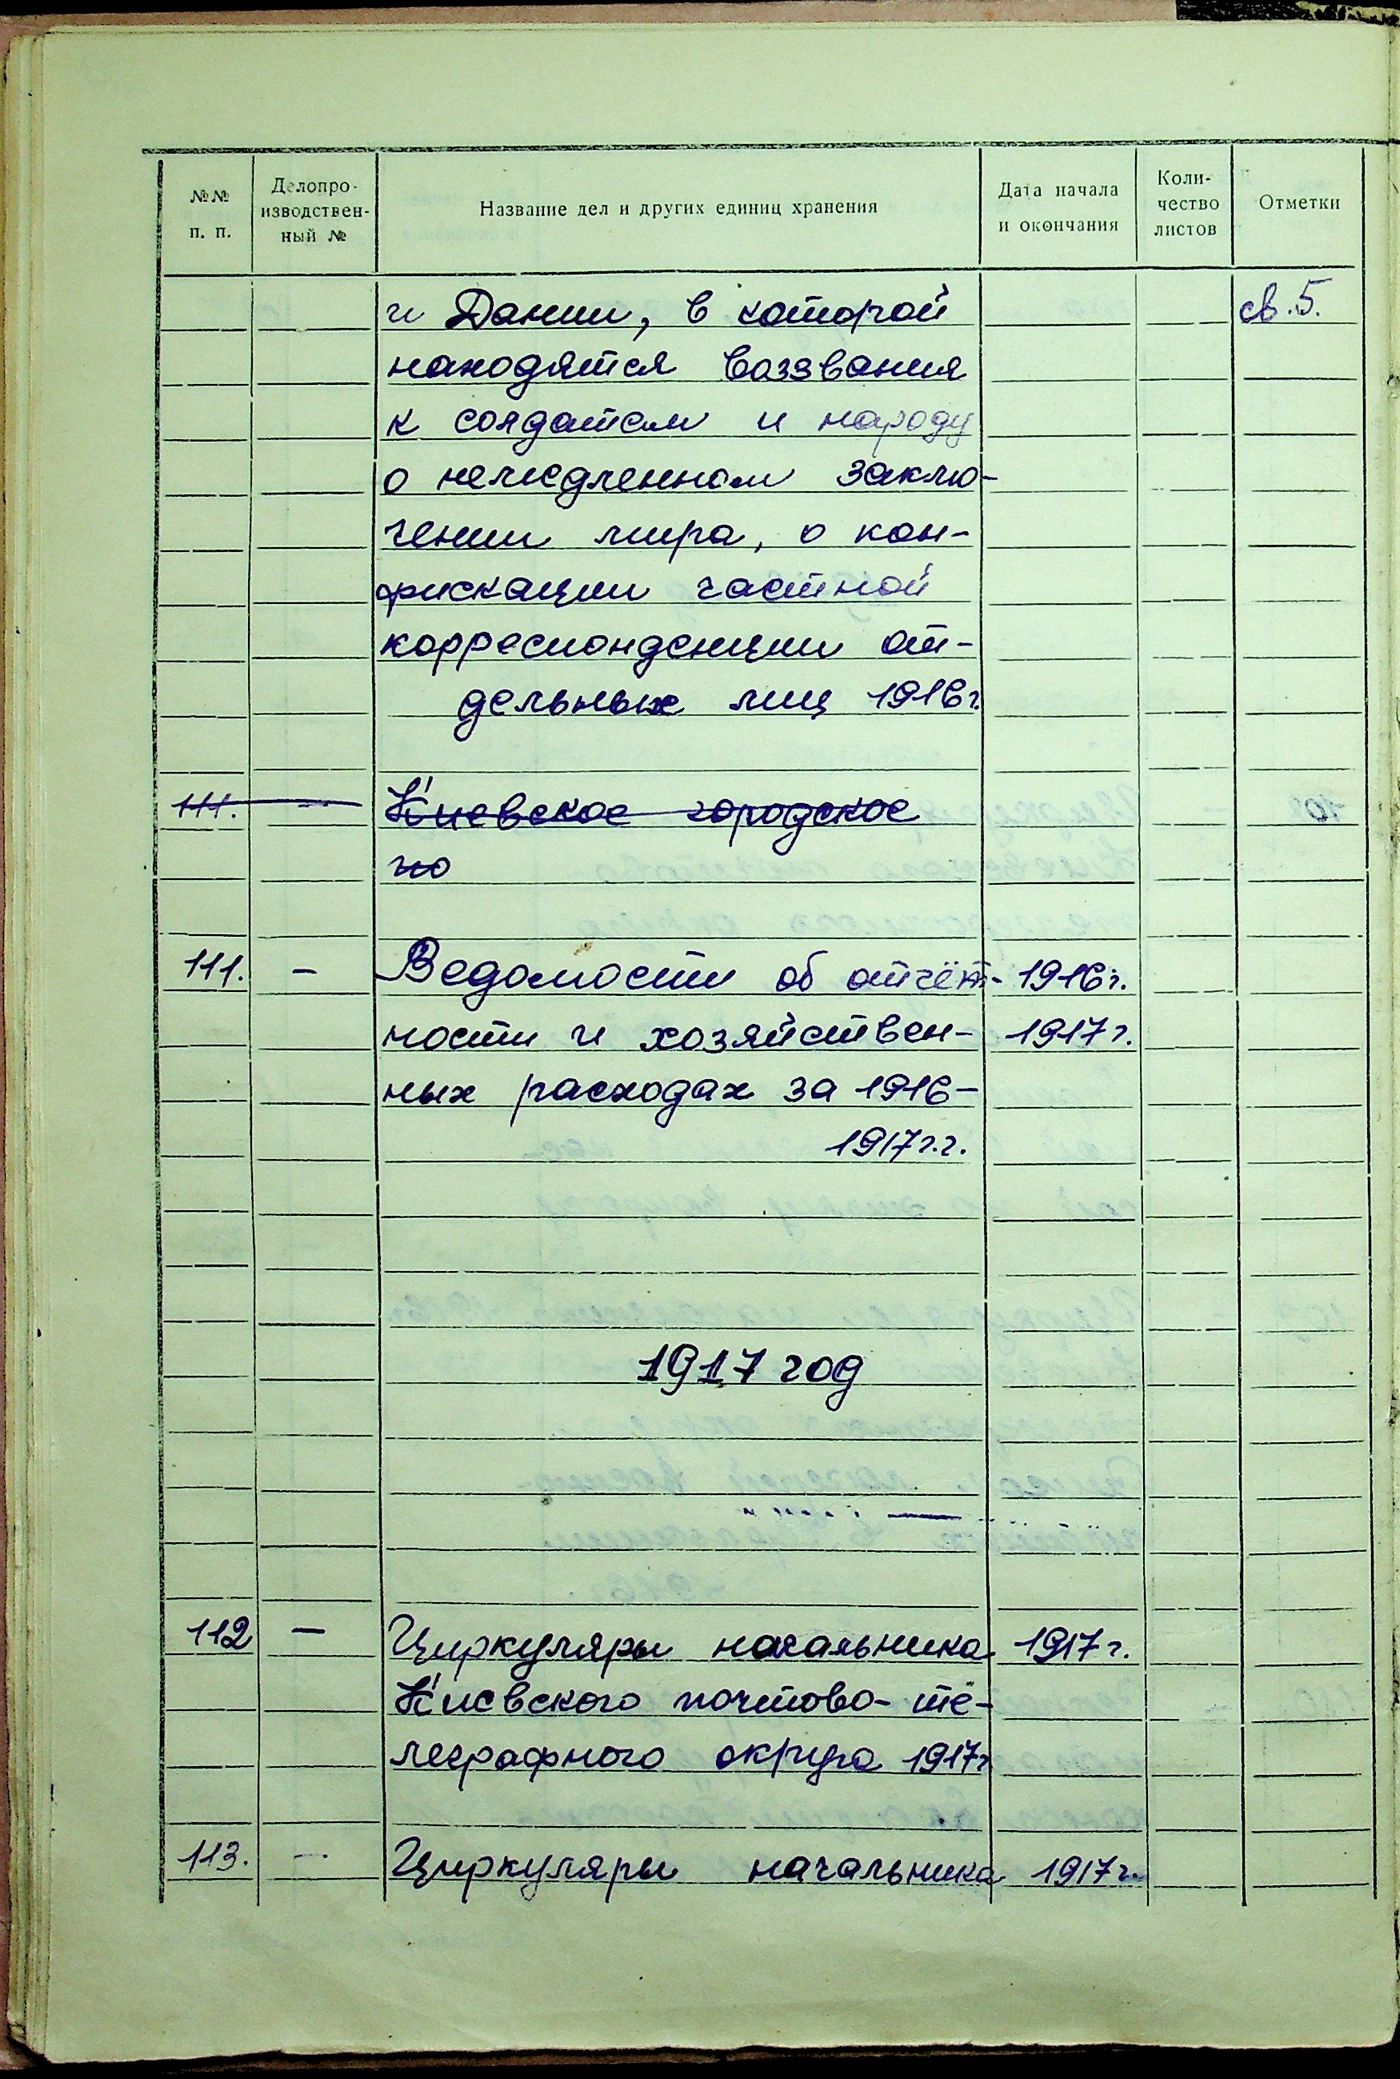 №№ п. п. Делопро- изводствен- ный № Название дел и других единиц хранения Дата начала и окончания Коли- чество листов Отметки
и Дании, в которой св. 5.
находятся воззвания
к солдатам и народу
о немедленном заклю-
чении мира, о кон-
фискации частной
корреспонденции от-
дельных лиц 1916 г.
111. — Киевское городское
по
111. — Ведомости об отчёт- 1916 г.
ности и хозяйствен- 1917 г.
ных расходах за 1916-
1917 г.г.
1917 год
112 — Циркуляры начальника 1917 г.
Киевского почтово-те-
леграфного округа 1917 г
113. — Циркуляры начальника 1917 г.